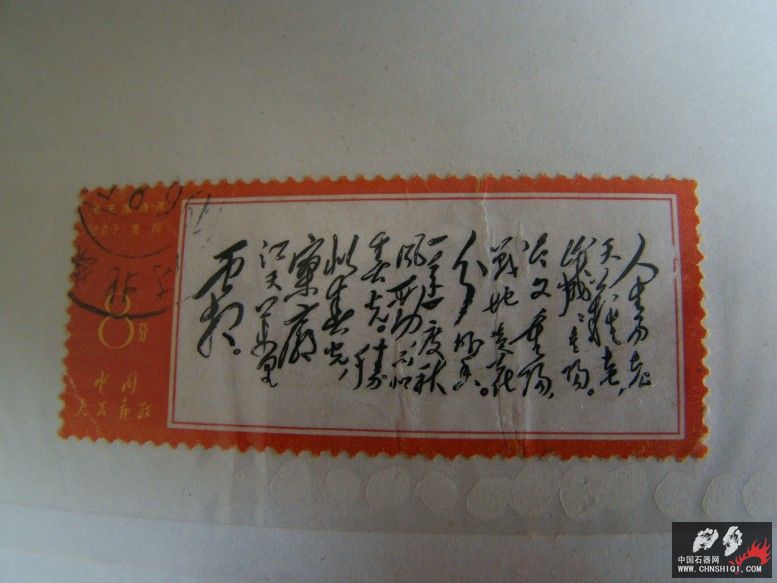 毛主席诗词
采桑子·重阳
8分
中国
人民邮政
人生易老
天难老，
岁岁重阳。
今又重阳，
战地黄花
分外香。
一年一度秋
风劲不似
春光。胜
似春光，
寥廓
江天万里
霜。
中国石器网
WWW.CHNSHIQI.COM